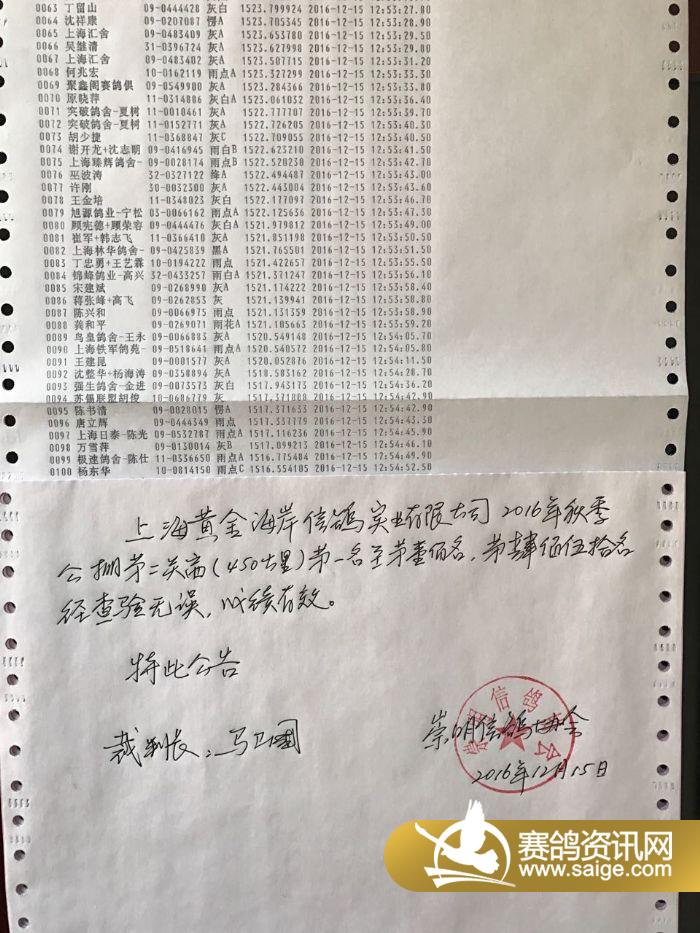 0063 丁留山 09-0444428 灰白 1523.799924 2016-12-15 12:53:27.80
0064 沈祥康 09-0207087 愣A 1523.705345 2016-12-15 12:53:28.90
0065 上海汇舍 09-0483409 灰A 1523.653780 2016-12-15 12:53:29.50
0066 吴继清 31-0396724 灰A 1523.627998 2016-12-15 12:53:29.80
0067 上海汇舍 09-0483402 灰A 1523.507715 2016-12-15 12:53:31.20
0068 何兆宏 10-0162119 雨点A 1523.327299 2016-12-15 12:53:33.30
0069 聚鑫阁赛鸽俱 09-0549900 灰A 1523.284366 2016-12-15 12:53:33.80
0070 原晓萍 11-0314886 灰白A 1523.061032 2016-12-15 12:53:36.40
0071 突破鸽舍-夏树 11-0010461 灰A 1522.777707 2016-12-15 12:53:39.70
0072 突破鸽舍-夏树 11-0152771 灰A 1522.726205 2016-12-15 12:53:40.30
0073 胡少捷 11-0368847 灰C 1522.709055 2016-12-15 12:53:40.50
0074 谢开龙+沈志明 09-0416945 雨白B 1522.623210 2016-12-15 12:53:41.50
0075 上海臻辉鸽舍- 09-0028174 雨点B 1522.520230 2016-12-15 12:53:42.70
0076 巫波涛 32-0327122 绛A 1522.494487 2016-12-15 12:53:43.00
0077 许刚 30-0032300 灰A 1522.443004 2016-12-15 12:53:43.60
0078 王金培 11-0348023 灰白 1522.177097 2016-12-15 12:53:46.70
0079 旭源鸽业-宁松 03-0066162 雨点A 1522.125636 2016-12-15 12:53:47.30
0080 顾宪德+顾荣容 09-0444476 灰白A 1521.979812 2016-12-15 12:53:49.00
0081 崔军+韩志飞 11-0366410 灰A 1521.851198 2016-12-15 12:53:50.50
0082 上海林华鸽舍- 09-0425839 黑A 1521.765501 2016-12-15 12:53:51.50
0083 丁忠勇+王艺霖 10-0194222 雨点 1521.422657 2016-12-15 12:53:55.50
0084 锦峰鸽业-高兴 32-0433257 雨白A 1521.371247 2016-12-15 12:53:56.10
0085 宋建斌 09-0268990 灰A 1521.174272 2016-12-15 12:53:58.40
0086 蒋张峰+高飞 09-0262853 灰 1521.139941 2016-12-15 12:53:58.80
0087 陈兴和 09-0066975 雨点 1521.131359 2016-12-15 12:53:58.90
0088 龚和平 09-0269071 雨花A 1521.105663 2016-12-15 12:53:59.20
0089 鸟皇鸽舍-王永 09-0066883 灰A 1520.549148 2016-12-15 12:54:05.70
0090 上海铁军鸽苑- 09-0518641 雨点A 1520.540572 2016-12-15 12:54:05.80
0091 王建昆 09-0001577 灰A 1520.052876 2016-12-15 12:54:11.50
0092 沈整华+杨海涛 09-0358894 灰A 1518.583162 2016-12-15 12:54:28.70
0093 强生鸽舍-金进 09-0073573 灰白 1517.943173 2016-12-15 12:54:36.20
0094 苏锡联盟胡俊 10-0686779 灰A 1517.371800 2016-12-15 12:54:42.90
0095 陈书清 09-0028015 愣A 1517.371633 2016-12-15 12:54:42.90
0096 唐立辉 09-0444349 雨点 1517.337779 2016-12-15 12:54:43.30
0097 上海日泰-陈光 09-0532787 雨点A 1517.116236 2016-12-15 12:54:45.90
0098 万雪萍 09-0130014 灰B 1517.099213 2016-12-15 12:54:46.10
0099 极速鸽舍-陈仕 11-0336650 雨点A 1516.775404 2016-12-15 12:54:49.90
0100 杨东华 10-0814150 雨点C 1516.554105 2016-12-15 12:54:52.50
上海黄金海岸信鸽实业有限公司2016年秋季
公棚第二关赛(450公里)第一名至第壹佰名，第肆佰伍拾名
经查验无误，成绩有效。
特此公告
裁判长：马卫国
崇明信鸽协会
2016年12月15日
赛鸽资讯网
www.saige.com